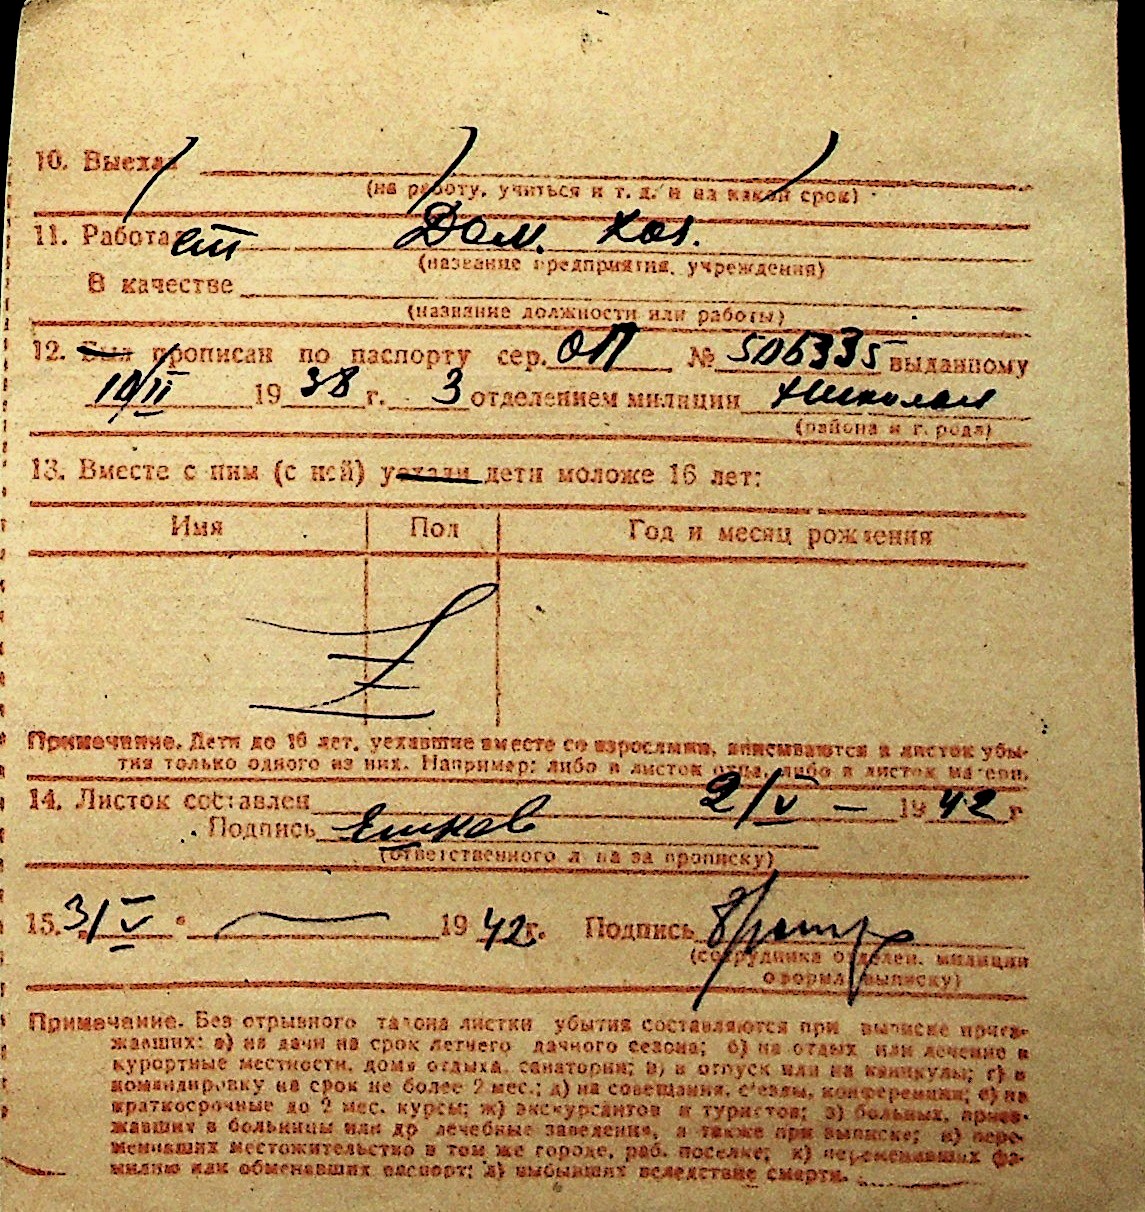 10. Выехал
(на работу, учиться и т. д. и на какой срок)
11. Работает Дом. хоз.
(название предприятия, учреждения)
В качестве
(название должности или работы)
12. Был прописан по паспорту сер. ОП № 506335 выданному
10/II 1938 г. 3 отделением милиции Николаев
(района и г. рода)
13. Вместе с ним (с ней) уехали дети моложе 16 лет:
Имя Пол Год и месяц рождения
Примечание. Дети до 16 лет, уехавшие вместе со взрослыми, вписываются в листок убы-
тия только одного из них. Например: либо в листок отца, либо в листок матери.
14. Листок составлен 2/V – 1942 г
Подпись
(ответственного лица за прописку)
15. 3/V 1942 г. Подпись
(сотрудника отделен. милиции
оформил. выписку)
Примечание. Без отрывного талона листки убытия составляются при выписке приез-
жавших: а) на дачи на срок летнего дачного сезона; б) на отдых или лечение в
курортные местности, дома отдыха, санатории; в) в отпуск или на каникулы; г) в
командировку на срок не более 2 мес.; д) на совещания, с'езды, конференции; е) на
краткосрочные до 2 мес. курсы; ж) экскурсантов и туристов; з) больных, приез-
жавших в больницы или др лечебные заведения, а также при выписке; и) пере-
менивших местожительство в том же городе, раб. поселке; к) переменивших фа-
милию или обменявших паспорт; л) выбывших вследствие смерти.